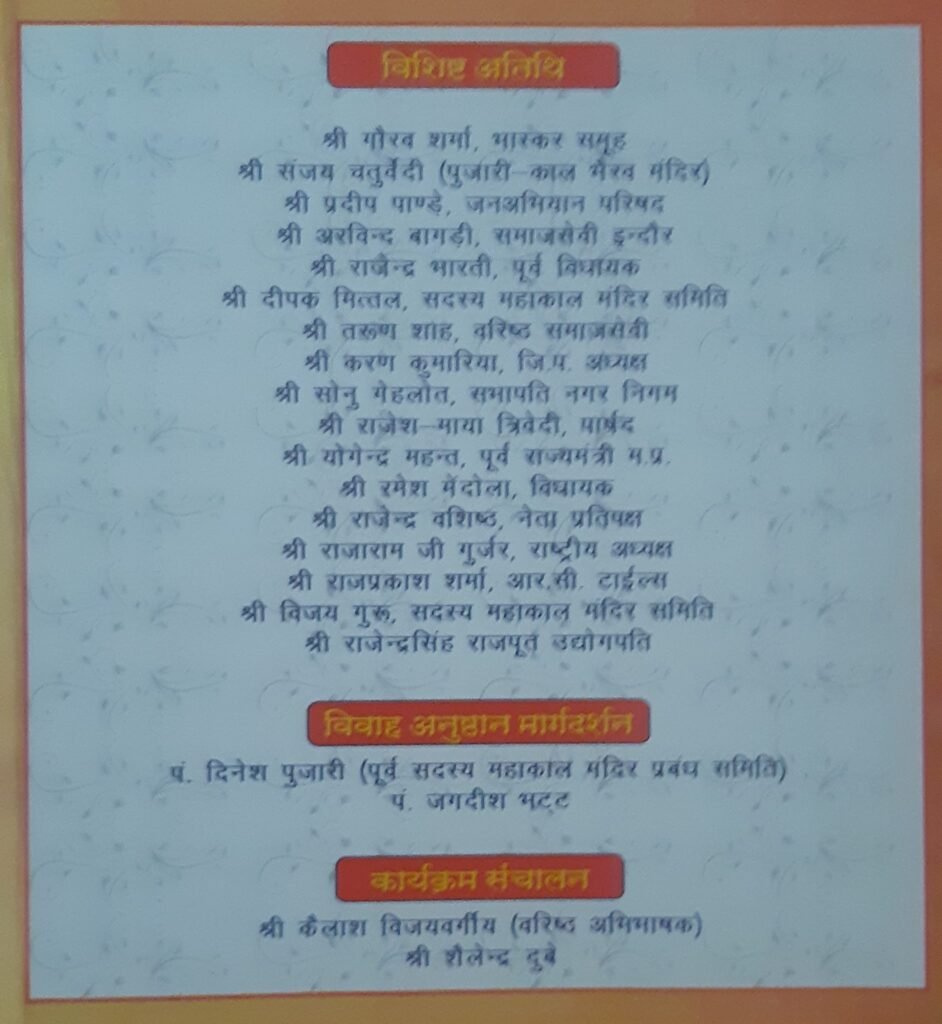 विशिष्ट अतिथि
श्री गौरव शर्मा, भास्कर समूह
श्री संजय चतुर्वेदी (पुजारी-काल भैरव मंदिर)
श्री प्रदीप पाण्डे, जनअभियान परिषद
श्री अरविन्द बागड़ी, समाजसेवी इन्दौर
श्री राजेन्द्र भारती, पूर्व विधायक
श्री दीपक मित्तल, सदस्य महाकाल मंदिर समिति
श्री तरूण शाह, वरिष्ठ समाजसेवी
श्री करण कुमारिया, जि.प. अध्यक्ष
श्री सोनु गेहलोत, सभापति नगर निगम
श्री राजेश-माया त्रिवेदी, पार्षद
श्री योगेन्द्र महन्त, पूर्व राज्यमंत्री म.प्र.
श्री रमेश मेंदोला, विधायक
श्री राजेन्द्र वशिष्ठ, नेता प्रतिपक्ष
श्री राजाराम जी गुर्जर, राष्ट्रीय अध्यक्ष
श्री राजप्रकाश शर्मा, आर.सी. टाईल्स
श्री विजय गुरू, सदस्य महाकाल मंदिर समिति
श्री राजेन्द्रसिंह राजपूत उद्योगपति
विवाह अनुष्ठान मार्गदर्शन
पं. दिनेश पुजारी (पूर्व सदस्य महाकाल मंदिर प्रबंध समिति)
पं. जगदीश भट्ट
कार्यक्रम संचालन
श्री कैलाश विजयवर्गीय (वरिष्ठ अभिभाषक)
श्री शैलेन्द्र दुबे